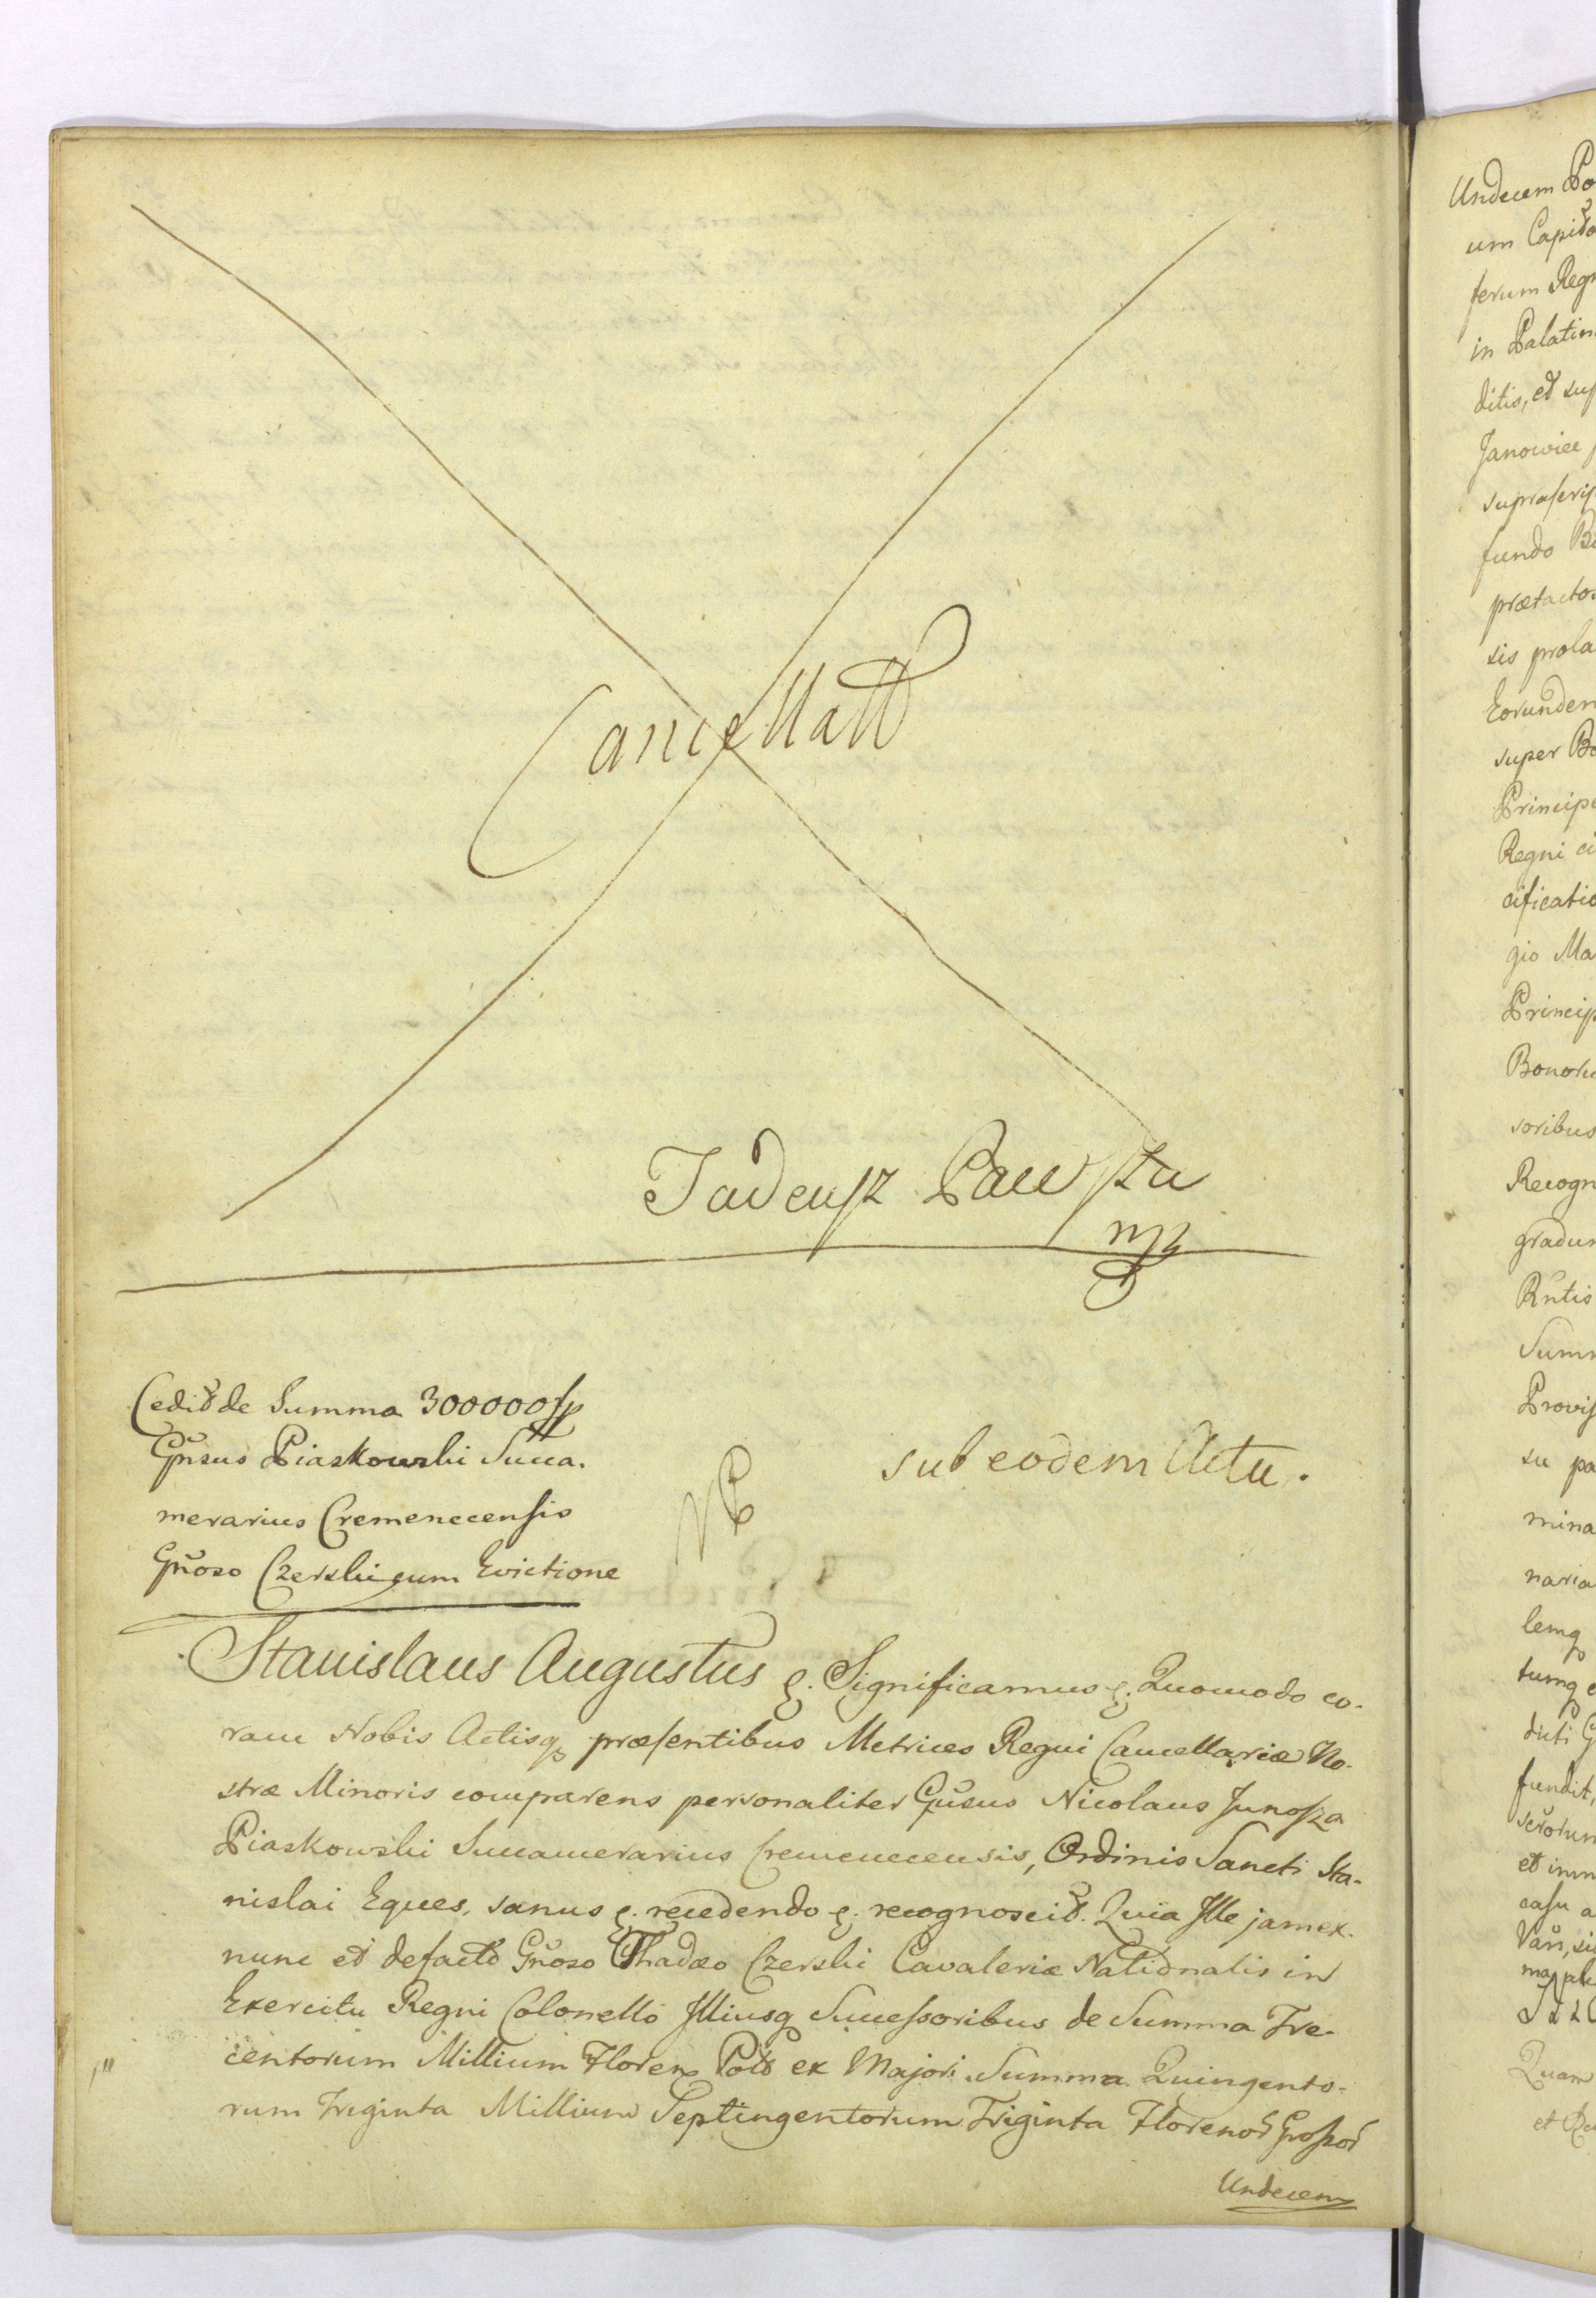 Cancellatt
Tadeusz
mp
Cedit de Summa 300000 fp
Gnsus Piaskowski Succa.
merarius Cremenecensis
Gnoso Czerski cum Evictione
sub eodem Actu.
Stanislaus Augustus &. Significamus &. Quomodo co-
ram Nobis Actisq præsentibus Metrices Regni Cancellariæ No-
stræ Minoris comparens personaliter Gnsus Nicolaus Junosza
Piaskowski Succamerarius Cremenecensis, Ordinis Sancti Sta-
nislai Eques, sanus &. recedendo &. recognoscit. Quia Ille jam ex-
nunc et defacto Gnoso Thadæo Czerski Cavaleriæ Nationalis in
Exercitu Regni Colonello Illiusq Successoribus de Summa Tre-
centorum Millium Floren Pol ex Majori Summa Quingento-
rum Triginta Millium Septingentorum Triginta Florenor Grossor
Undecem
Undecem Po
um Capit
terum Regn
in Palatin
ditis, et sup
Janowice
suprascrip
fundo Bo
prætacto
sis prola
Eorundem
super Bo
Principe
Regni
cificatio
gio Ma
Princip
Bonoru
soribus
Recogn
gradum
Rntis
Summ
Provis
su pa
mina
naria
lemq
tumq
dicti G
fundit,
et imm
casu a
Quam
et